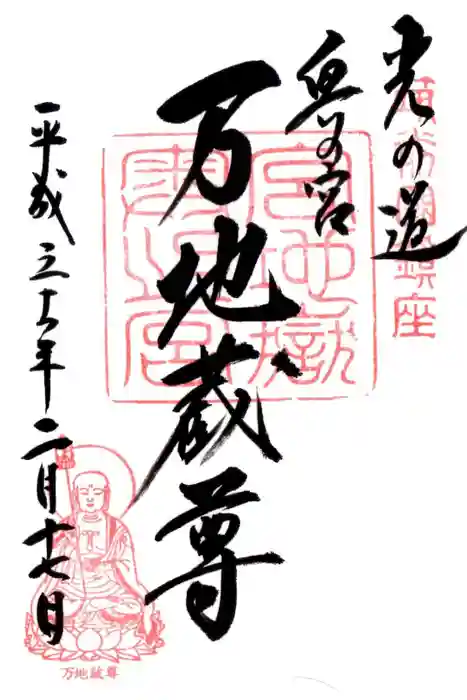 光の道
奥の宮
万地蔵尊
平成三十一年二月十七日
宮地嶽
奥之宮
鎮座
万地蔵尊